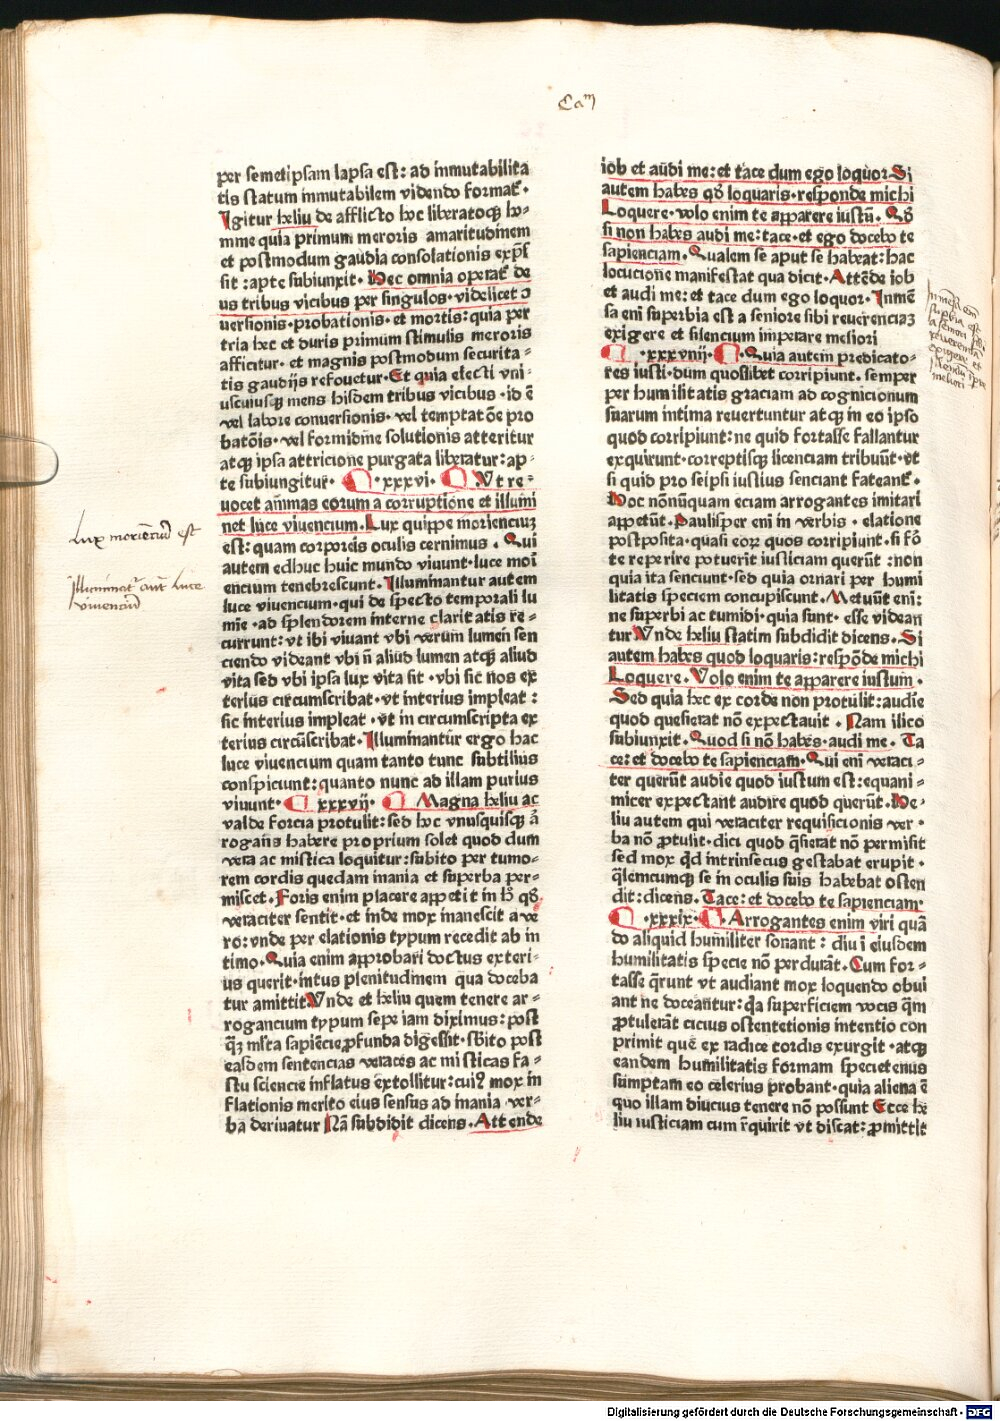 Cam
per semetipsam lapsa est: ad inmutabilita
tis statum inmutabilem videndo format᷑·
Igitur heliu de afflicto hec liberatoqꝫ ho⸗
mme quia primum meroris amaritudinem
et postmodum gaudia consolationis exp̃s
sit : apte subiunxit· Hec omnia operat᷑ de
us tribus vicibus per singulos·videlicet ↄ
uersionis·probationis·et mortis: quia per
tria hec et duris primum stimulis meroris
afficitur· et magnis postmodum securita⸗
tis gaudijs refouetur·Et quia electi vni⸗
uscuiusqꝫ mens hisdem tribus vicibus ·id ē
vel labore conuersionis· vel temptatōe pro
batōis·vel formidine solutionis atteritur
atqꝫ ipsa attricione purgata liberatur: ap⸗
te subiungitur· ·xxxvi· Vt re⸗
uocet añimas eorum a corruptione et illumi
net luce viuencium. Lux quippe morienciuꝫ
est: quam corporeis oculis cernimus . Qui
autem edhuc huic mundo viuunt·luce mori
encium tenebrescunt. Illuminantur autem
luce viuencium·qui despecto temporali lu
mie·ad splendorem interne claritatis re⸗
currunt: vt ibi viuant vbi verum lumen sen
ciendo videant vbi ñ aliud lumen atqꝫ aliud
vita sed vbi ipsa lux vita sit ·vbi sic nos ex
terius circumscribat·vt interius impleat :
sic interius impleat ·vt in circumscripta ex
terius circũscribat·Illuminantur ergo hac
luce viuencium quam tanto tunc subtilius
conspiciunt: quanto nunc ad illam purius
viuunt· xxxvij· Magna heliu ac
valde forcia protulit: sed hoc vnusquisqꝫ ar̃
rogans habere proprium solet quod dum
vera ac mistica loquitur: subito per tumo⸗
rem cordis quedam inania et superba per⸗
miscet. Foris enim placere appetit in h̃ qđ
veraciter sentit·et inde mox inanescit a ve
ro: vnde per elationis typum recedit ab in
timo·Quia enim approbari doctus exteri⸗
us querit·intus plenitudinem qua doceba
tur amittit.Vnde et heliu quem tenere ar⸗
rogancium typum sepe iam diximus: post
qꝫ̃ ml̃ta sapiēcie ꝓfunda digessit· sb̃ito post
easdem sentencias veraces ac misticas fa⸗
stu sciencie inflatus extollitur: cuiꝰ mox in
flationis merito eius sensus ad inania ver⸗
ba deriuatur Nã subdidit dicens. Attende
iob et audi me: et tace dum ego loquor Si
autem habes qđ loquaris·responde michi
Loquere·volo enim te apparere iustũ. Qđ
si non habes audi me: tace·et ego docebo te
sapienciam. Qualem se aput se habeat: hac
locucione manifestat qua dicit. Attēde iob
et audi me: et tace dum ego loquor. Inmē
sa eni superbia est a seniore sibi reuerenciaꝫ
exigere et silencium imperare meliori
·xxxviij· Quia autem predicato⸗
res iusti·dum quoslibet corripiunt. semper
per humilitatis graciam ad cognicionum
suarum intima reuertuntur atqꝫ in eo ipso
quod corripiunt: ne quid fortasse fallantur
exquirunt·correptisqꝫ licenciam tribuũt·vt
si quid pro seipsi iustius senciant fateant᷑.
Hoc nōnũquam eciam arrogantes imitari
appetũt. Paulisper eni in verbis . elatione
postposita·quasi eorꝫ quos corripiunt·si fō
te reperire potuerit iusticiam querũt : non
quia ita senciunt·sed quia ornari per humi
litatis speciem concupiscunt. Metuũt eni:
ne superbi ac tumidi·quia sunt· esse videan
tur Vnde heliu statim subdidit dicens. Si
autem habes quod loquaris: respōde michi
Loquere. Volo enim te apparere iustum .
Sed quia hec ex corde non protulit: audire
quod quesierat nō expectauit . Nam ilico
subiunxit. Quod si nō habes·audi me. Ta
ce: et docebo te sapienciam. Qui eni veraci⸗
ter querũt audire quod iustum est: equani⸗
miter expectant audire quod querũt. He⸗
liu autem qui veraciter requisicionis ver⸗
ba nō ꝓtulit·dici quod q̃sierat nō permisit
sed mox qd̃ intrinsecus gestabat erupit .
q̃lemcumqꝫ se in oculis suis habebat osten
dit: dicens. Tace: et docebo te sapienciam·
·xxxix· Arrogantes enim viri quã
do aliquid humiliter sonant : diu ĩ eiusdem
humilitatis specie nō perdurãt. Cum for⸗
tasse q̃runt vt audiant mox loquendo obui
ant ne doceantur: q̃a superficiem vocis q̃m
ꝓtulerãt cicius ostentetionis intentio con
primit que ex radice cordis exurgit·atqꝫ
eandem humilitatis formam specietenus
sumptam eo celerius probant·quia aliena ē
quo illam diucius tenere nō possunt Ecce he
liu iusticiam cum r̃quirit vt discat: ꝓmittit
Lux moriencium est
Illuminantur autem luce
viuencium
Digitalisierung gefördert durch die Deutsche Forschungsgemeinschaft - DFG